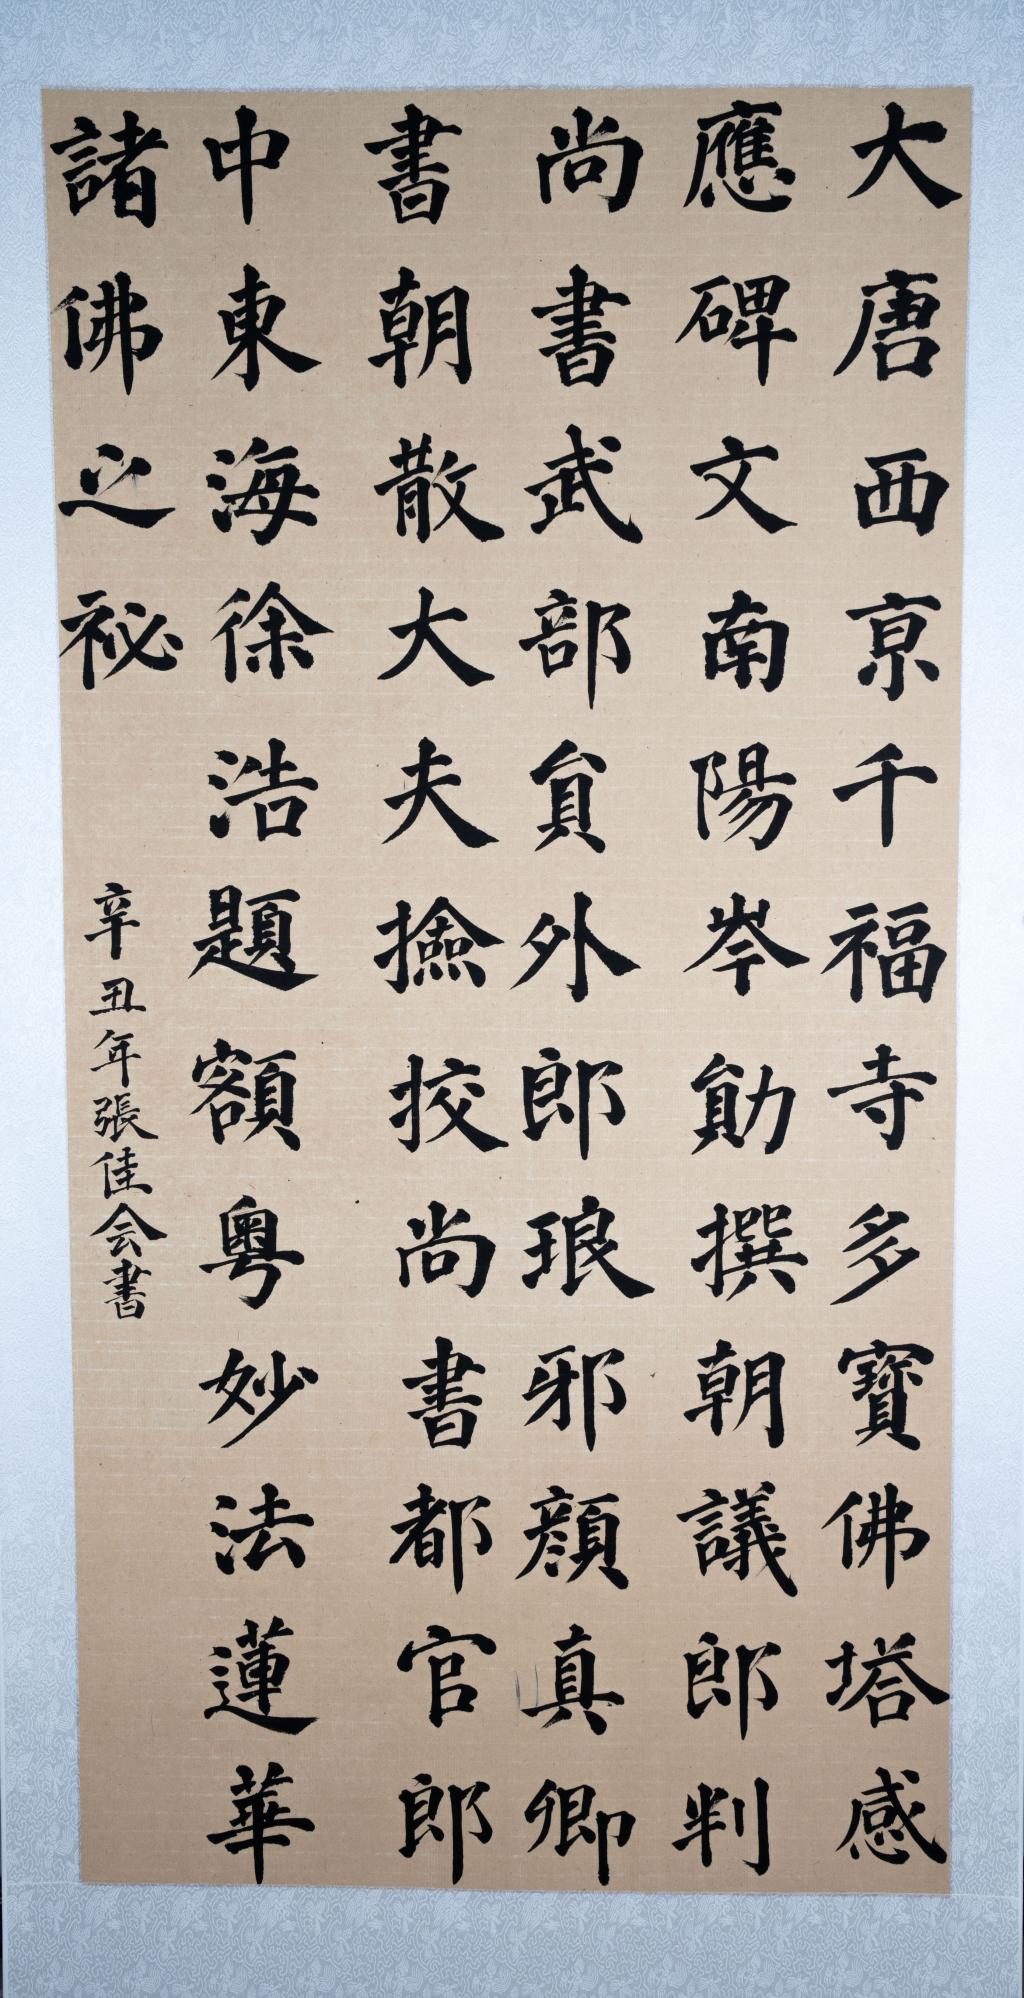 大唐西京千福寺多寶佛塔感
應碑文南陽岑勛撰朝議郎判
尚書武部員外郎琅邪顏真卿
書朝散大夫撿挍尚書都官郎
中東海徐浩題額粵妙法蓮華
諸佛之祕
辛丑年張佳会書